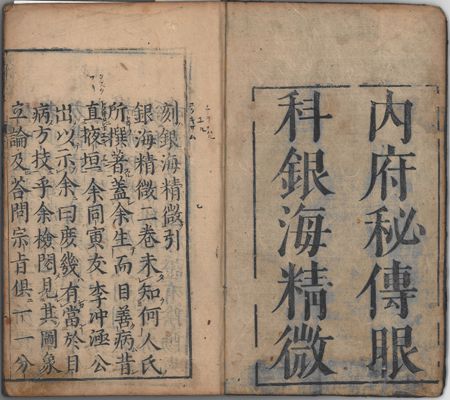 内府秘傳眼
科銀海精微
刻銀海精微引
銀海精微二卷未知何人氏
所撰著盖余生而目善病昔
直掖垣余同寅友李冲涵公
出以示余曰庻幾有當於目
病方技乎余檢閱見其圖象
立論及答問宗旨俱一一分